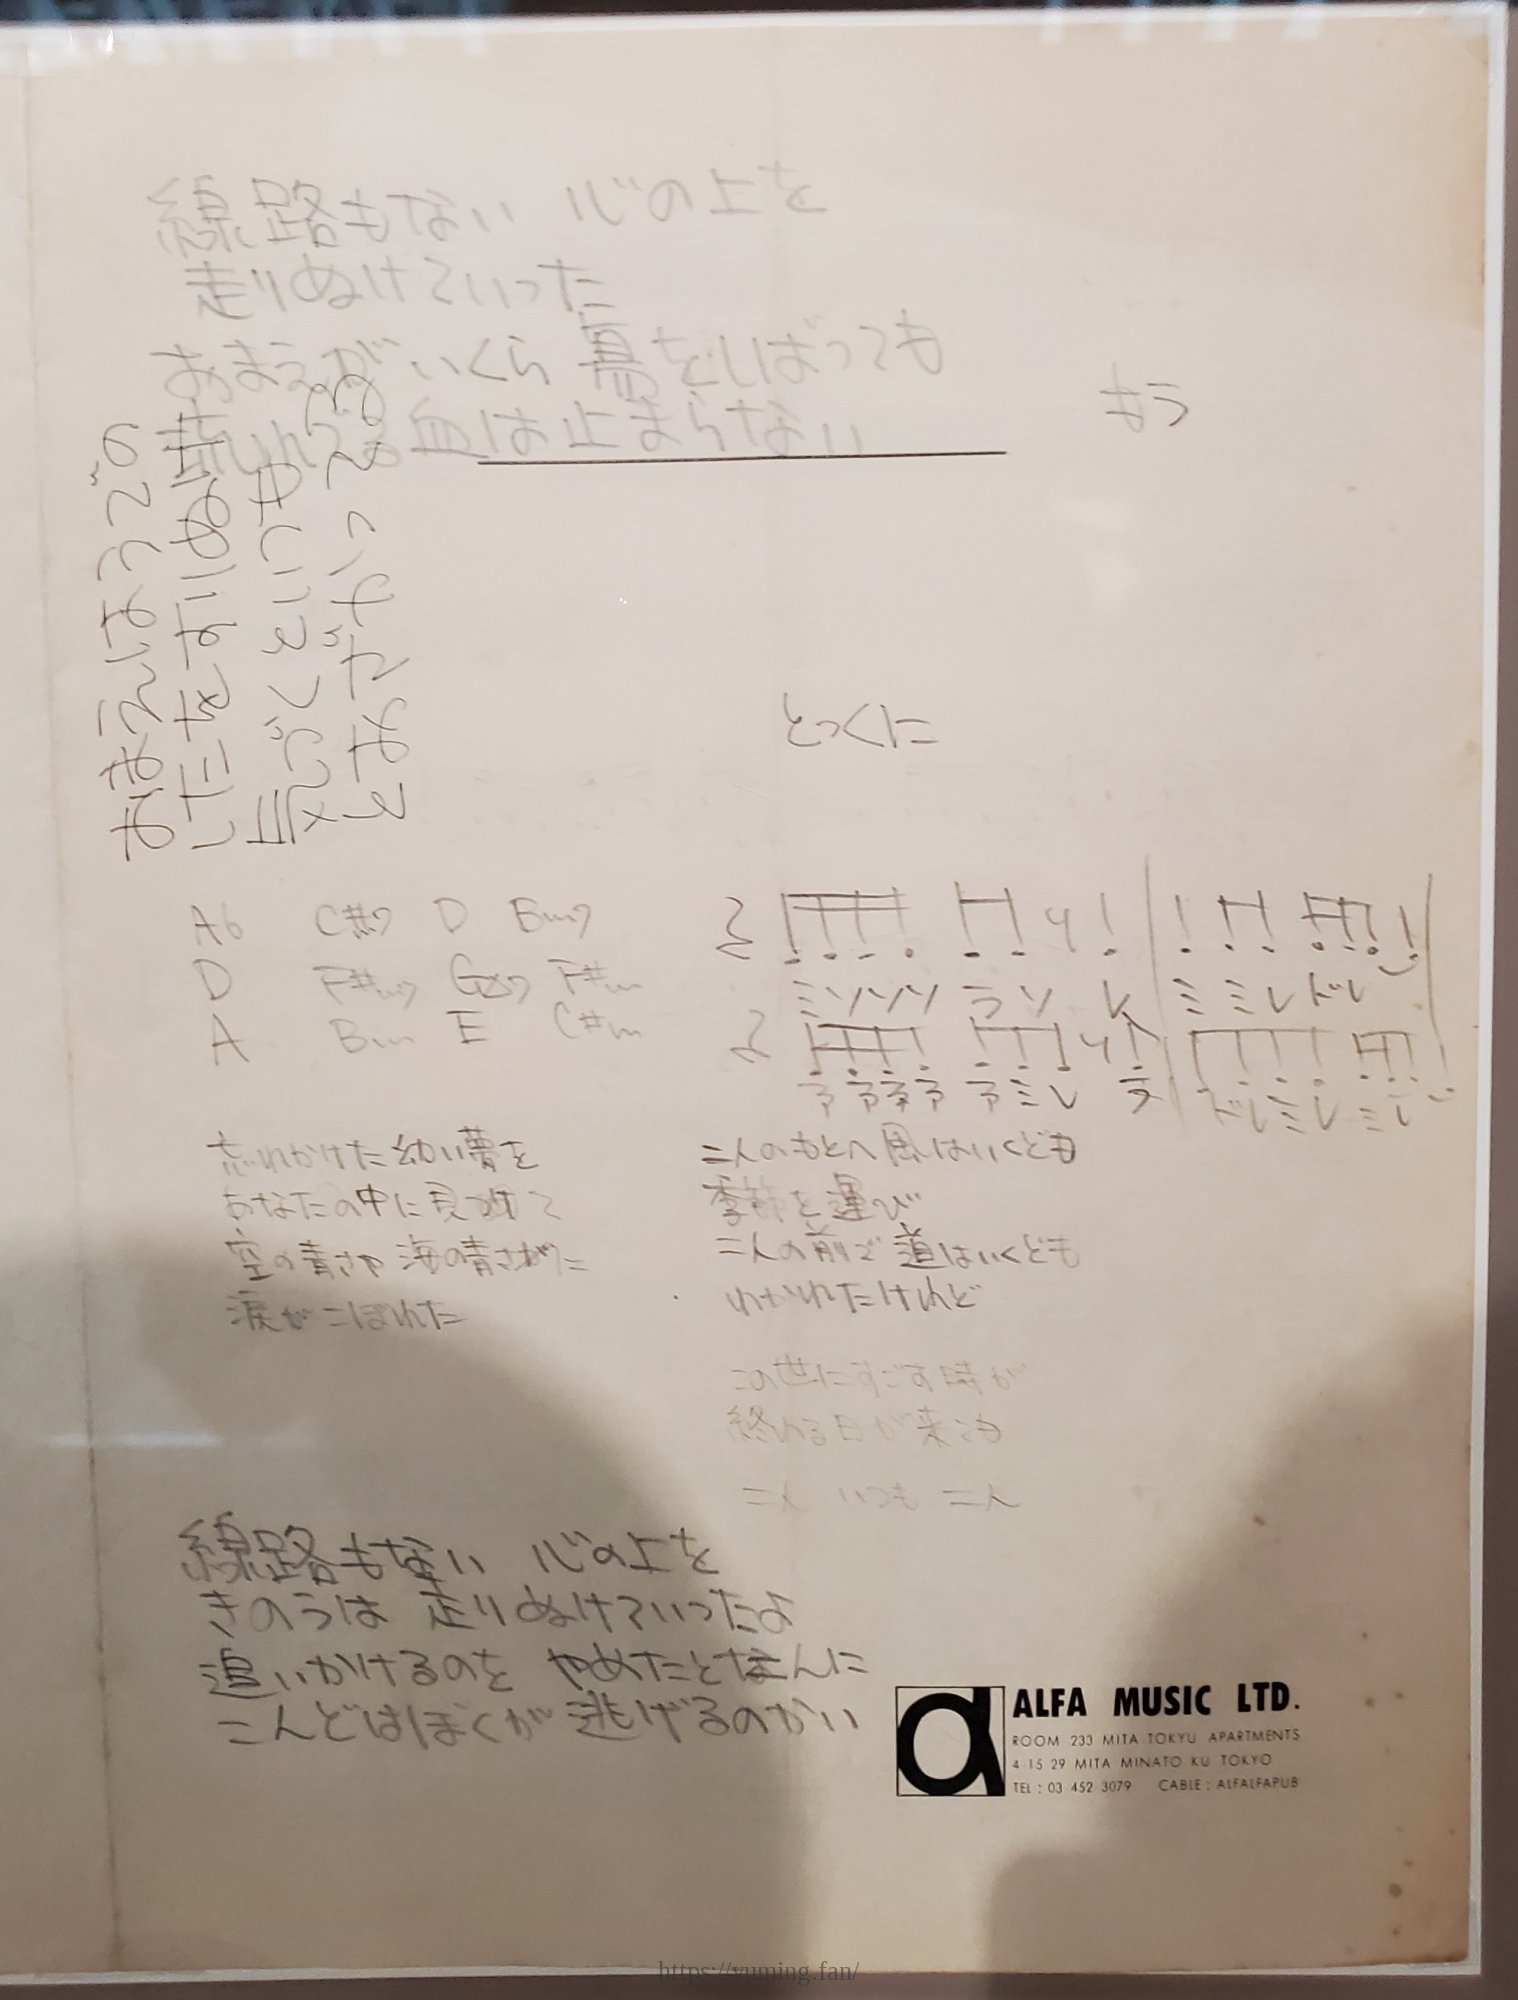 線路もない 心の上を
走りぬけていった
おまえがいくら 肩をしばっても
流れでる血は止まらない
もう
おまえはようでの
したをすりぬけ
気がくといつも
とおざかってる
とっくに
A6 C#7 D Bm7
D F#m7 F#m
A Bm E C#m
ミソソソ ラソ レ ミ ミレ ドレ
ララララ ラミレ ラ ドレミレ ミレ
忘れかけた幼い夢を
あなたの中に見つけて
空の青さや 海の青さがりに
涙がこぼれた
二人のもとへ風はいくども
季節を運び
二人の前で道はいくども
わかれたけれど
この世にすごす時が
終わる日が来ても
二人 いつも 二人
線路もない 心の上を
きのうは 走りぬけていったよ
追いかけるのを やめたとたんに
こんどはぼくが逃げるのかい
ALFA MUSIC LTD.
ROOM 233 MITA TOKYU APARTMENTS
4 15 29 MITA MINATO KU TOKYO
TEL : 03 452 3079 CABLE : ALFALFAPUB
https://yuming.fan/